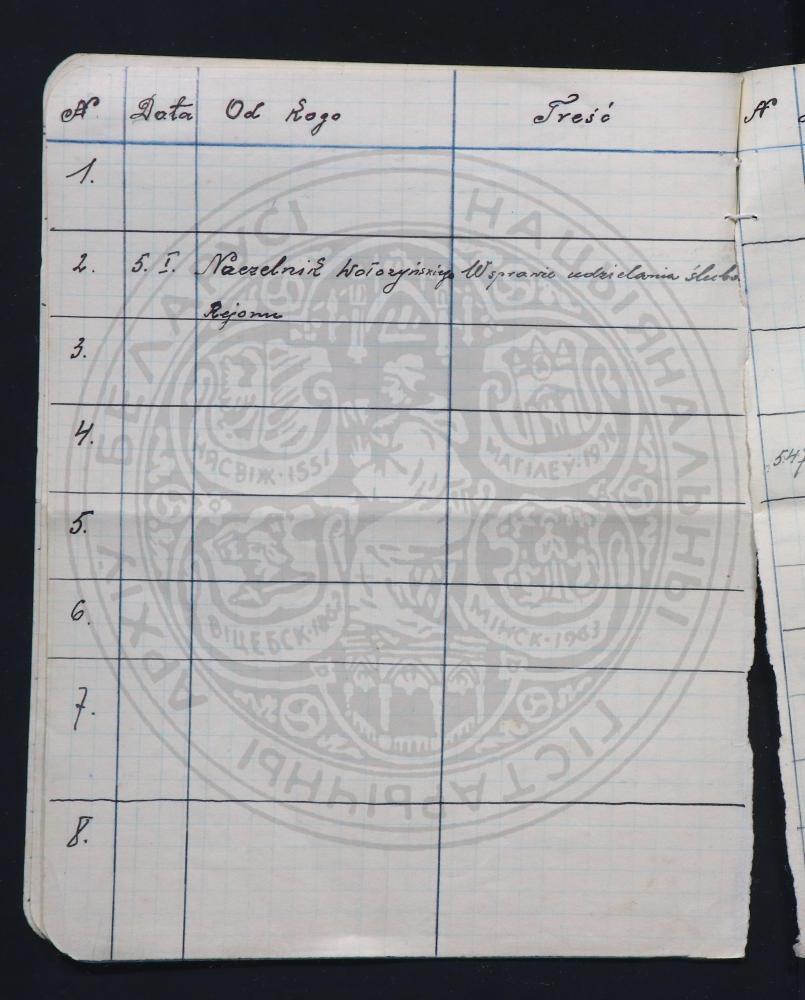 № Data Od kogo Treść
1.
2. 5. I. Naczelnik Wołożyńskiego W sprawie udzielania ślubo
Rejonu
3.
4.
5.
6.
7.
8.
№
547
НАЦЫЯНАЛЬНЫ ГІСТАРЫЧНЫ АРХІЎ БЕЛАРУСІ
НЯСВІЖ·1551
МАГІЛЕЎ·19
ВІЦЕБСК·1863
МІНСК·1963